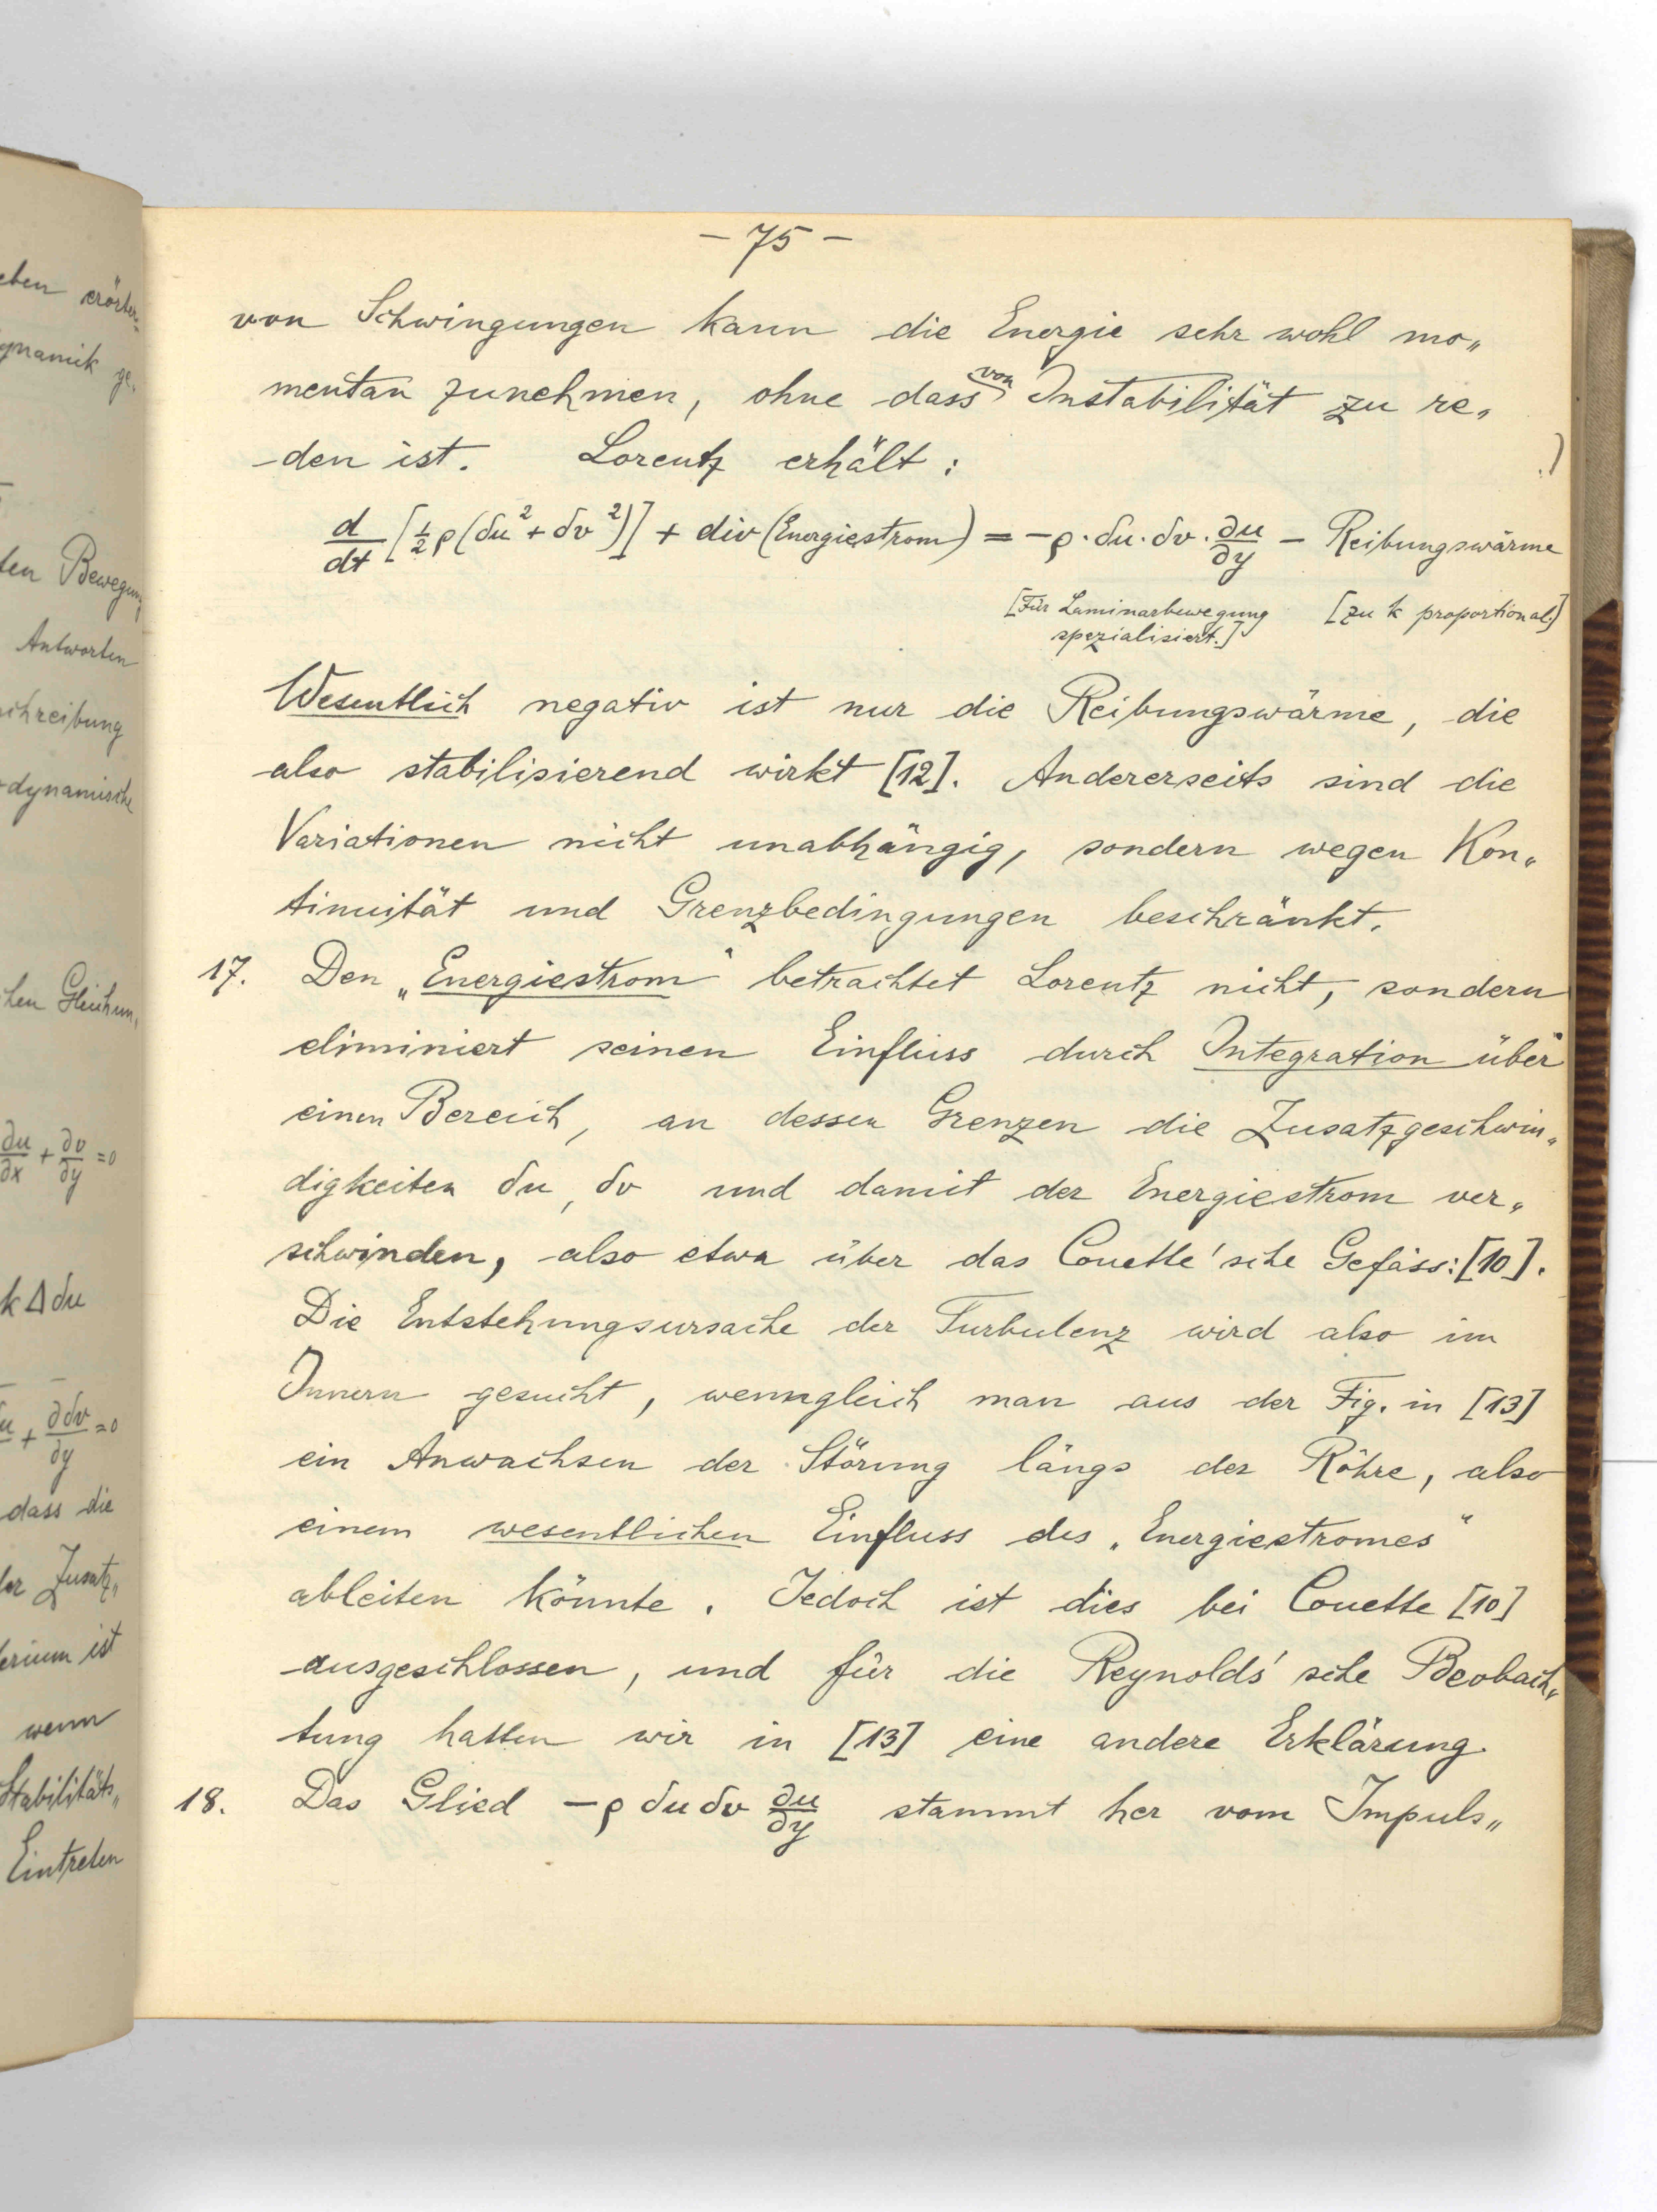 eben erörter=
ynamik ge„
ten Bewegung
Antworten
schreibung
dynamische
hen Gleichun„
∂u/∂x + ∂v/∂y = 0
k Δ δu
+ ∂δv/∂y = 0
dass die
der Zusatz„
terium ist
wenn
Stabilitäts„
Eintreten
– 75 –
von Schwingungen kann die Energie sehr wohl mo„
mentan zunehmen, ohne dass von Instabilität zu re„
den ist. Lorentz erhält:
d/dt [½ρ(δu² + δv²)] + div (Energiestrom) = −ρ·δu·δv·∂u/∂y − Reibungswärme
[Für Laminarbewegung [zu k proportional.]
spezialisiert.]
Wesentlich negativ ist nur die Reibungswärme, die
also stabilisierend wirkt [12]. Andererseits sind die
Variationen nicht unabhängig, sondern wegen Kon„
tinuität und Grenzbedingungen beschränkt.
17. Den „Energiestrom“ betrachtet Lorentz nicht, sondern
eliminiert seinen Einfluss durch Integration über
einen Bereich, an dessen Grenzen die Zusatzgeschwin„
digkeiten δu, δv und damit der Energiestrom ver„
schwinden, also etwa über das Couette'sche Gefäss: [10].
Die Entstehungsursache der Turbulenz wird also im
Innern gesucht, wenngleich man aus der Fig. in [13]
ein Anwachsen der Störung längs der Röhre, also
einem wesentlichen Einfluss des „Energiestromes“
ableiten könnte. Jedoch ist dies bei Couette [10]
ausgeschlossen, und für die Reynolds'sche Beobach„
tung hatten wir in [13] eine andere Erklärung.
18. Das Glied −ρ δu δv ∂u/∂y stammt her vom Impuls„